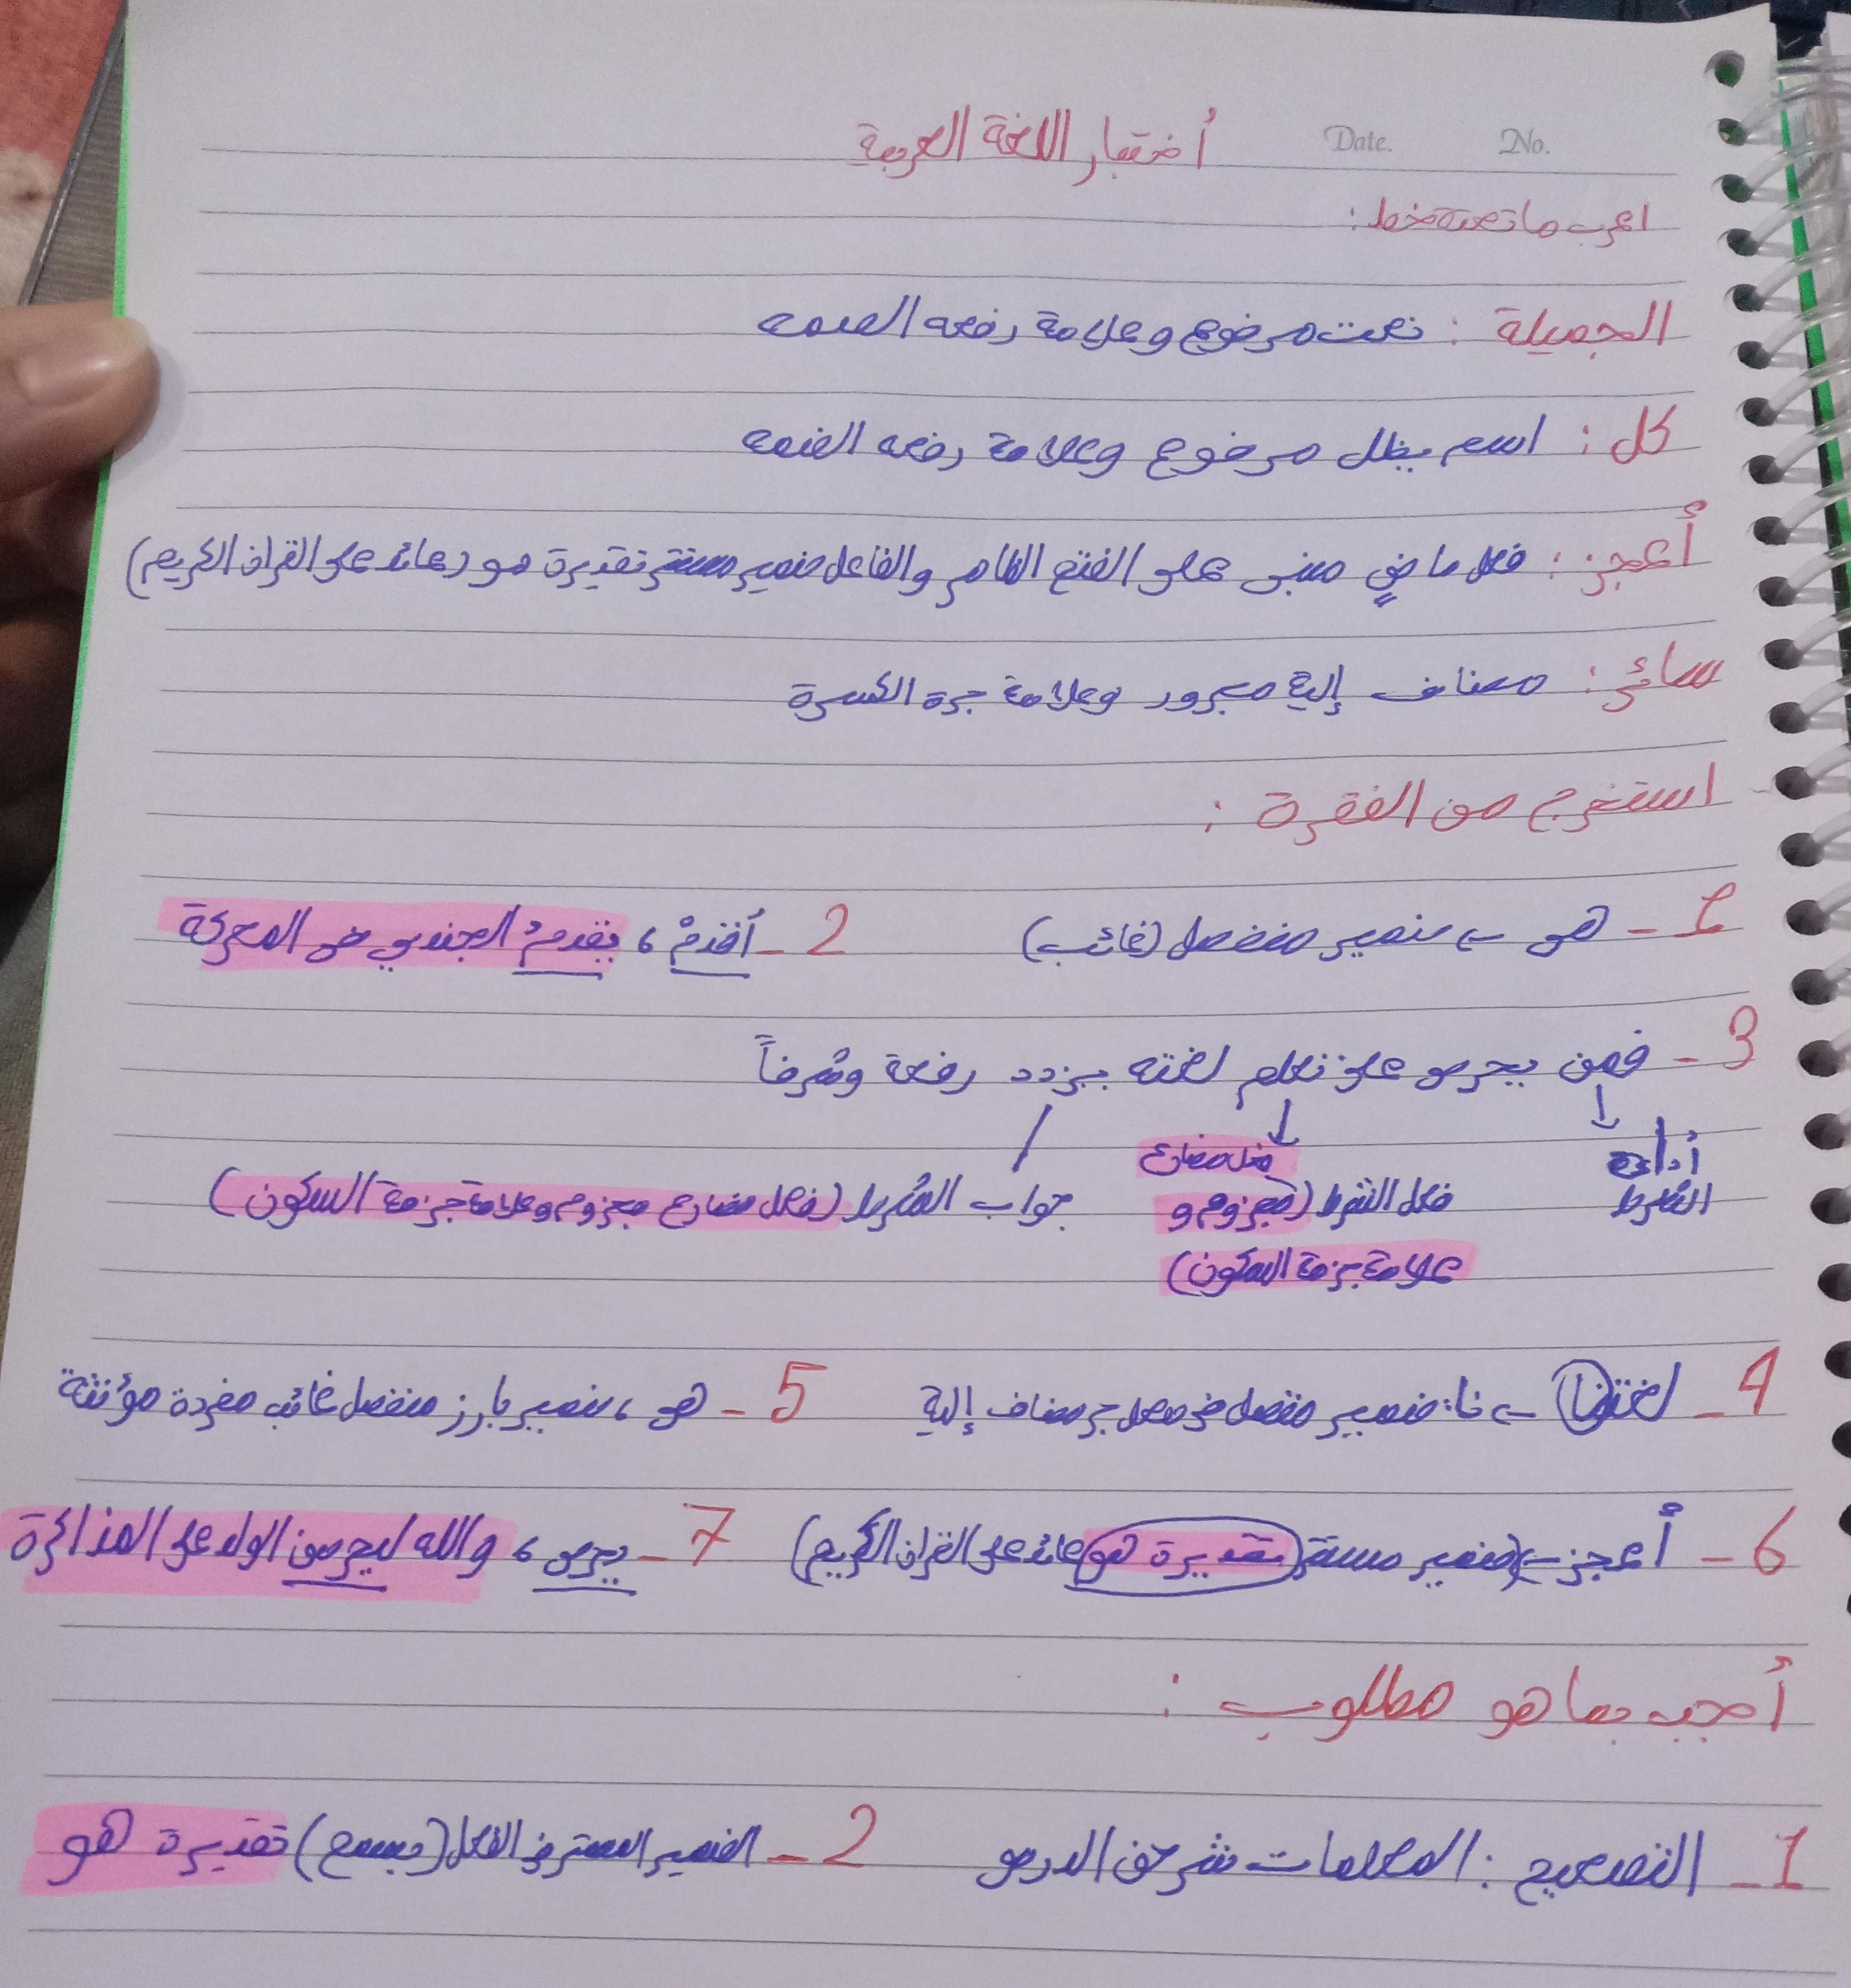 No. Date.
أختبار اللغة العربية
اعرب ما تحته خط :
الجميلة : نعت مرفوع وعلامة رفعه الضمه
كل : اسم يظل مرفوع وعلامة رفعه الضمه
أعجز : فعل ماضٍ مبنى على الفتح الظاهر والفاعل ضمير مستتر تقديرة هو (عائد على القران الكريم)
سائر : مضاف إلية مجرور وعلامة جرة الكسرة
استخرج من الفقرة :
1 - هو ← ضمير منفصل (غائب) 2 - أقدمْ ، يقدمُ الجندي في المعركة
3 - فمن يحرص على تعلم لغته يزدد رفعة وشرفاً
أداة الشرط
فعل مضارع
فعل الشرط (مجزوم و جواب الشرط (فعل مضارع مجزوم وعلامة جزمة السكون)
علامة جزمة السكون)
4 - لغتنا ← نا : ضمير متصل في محل جر مضاف إلية 5 - هو ، ضمير بارز منفصل غائب مفردة مؤنثة
6 - أعجز ← (ضمير مستتر تقديرة هو عائد على القران الكريم) 7 - يحرص ، والله ليحرصن الولد على المذاكرة
أجب بما هو مطلوب :
1 - التصحيح : المعلمات شرحن الدرس 2 - الضمير المستتر في الفعل ( ) تقديرة هو